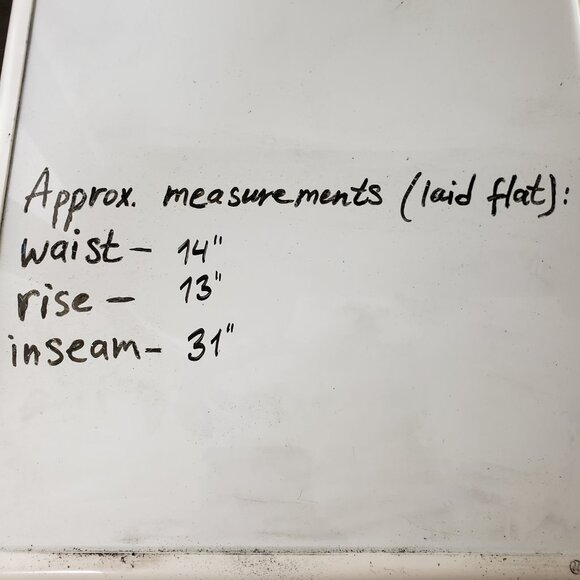 Approx. measurements (laid flat):
waist- 14"
rise - 13"
inseam- 31"